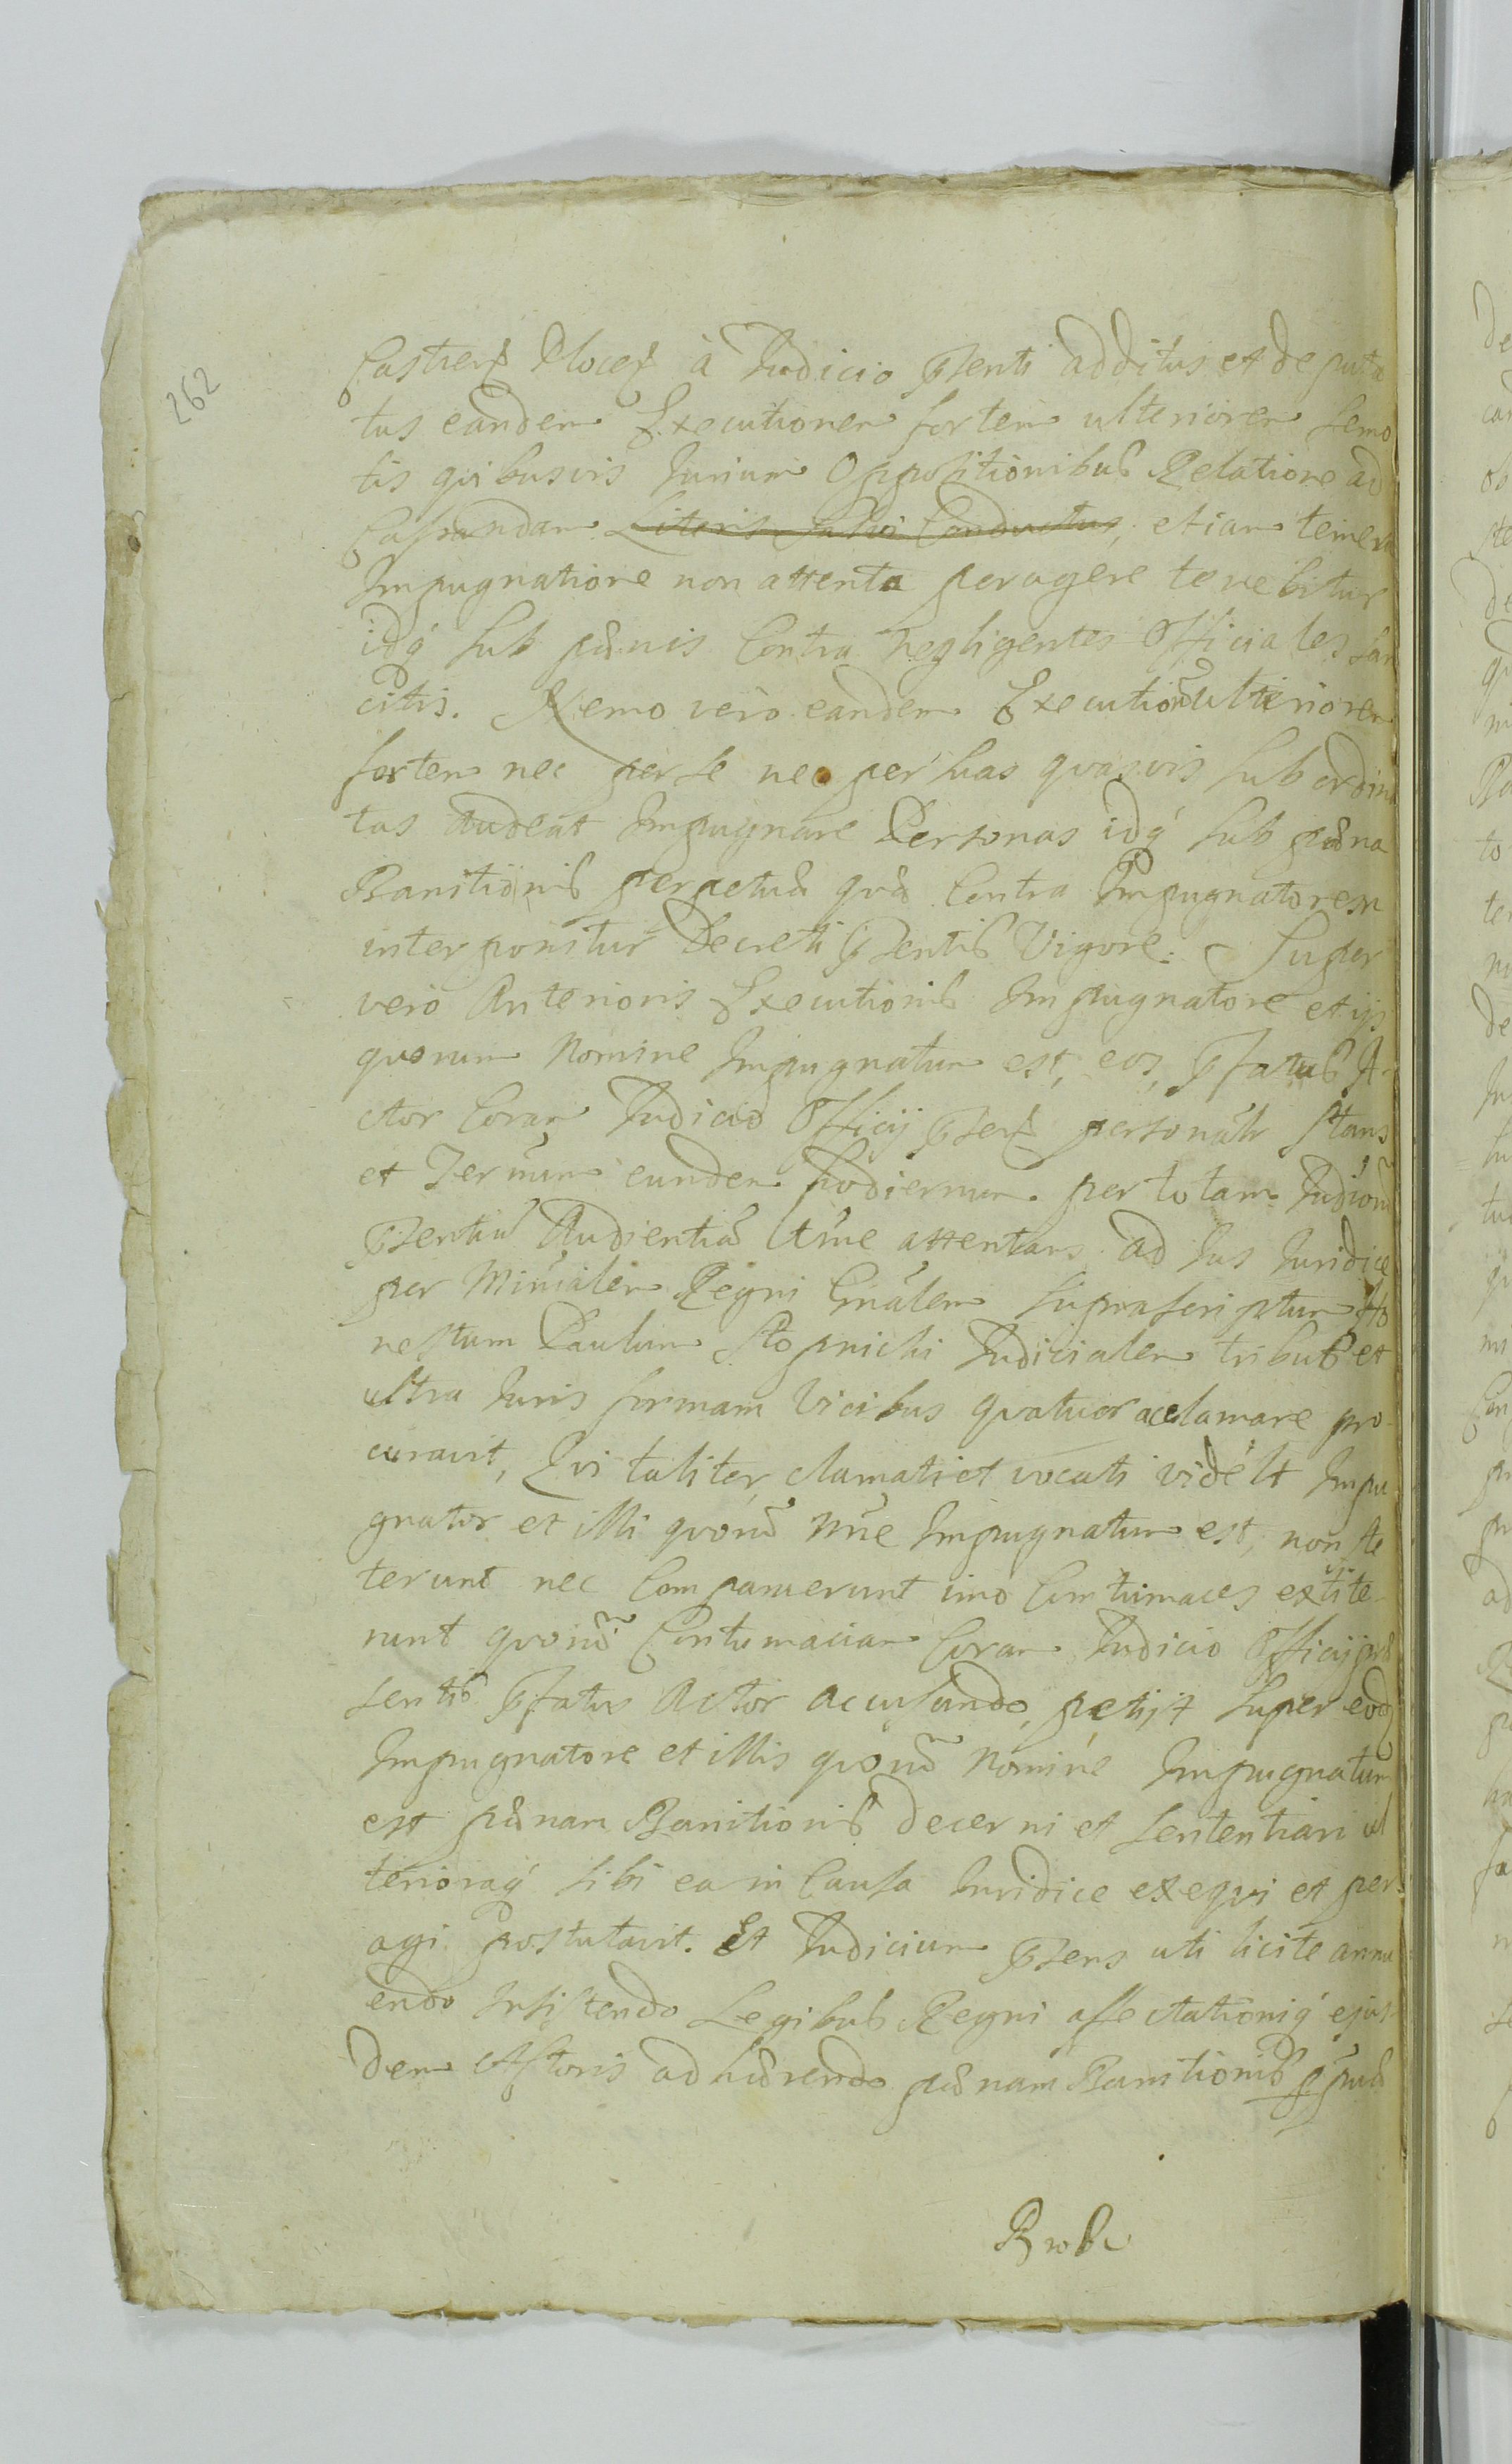 262
Castren Plocen à Judicio pSenti additus et deputa
tus eandem Executionem fortem ulteriorem semo
tis quibusvis Jurium Oppositionibus Relatione ad
Cassandam Literis Salvi Conductus, etiam temera
Impugnatione non attenta peragere tenebitur
idq́ sub pænis Contra negligentes Officiales San
citis. Nemo vero eandem Executionẽ ulteriorem
fortem nec per se nec per suas quasvis subordina
tas audeat Impugnare Personas idq́ sub pæna
Banitionis perpetuæ quæ Contra Impugnatorem
interponitur Decreti pSentis Vigore. Super
vero Anterioris Executionis Impugnatore et ijs
quorum Nomine Impugnatum est, eos, pfatus A
ctor Coram Judicio Officij pSen personalr Stans
et Termum eundem hodiernum per totam Judiorũ
pSentiũ Audientiã Atme attentans ad Jus Juridice
per Minialem Regni Gnalem Suprascriptum Ho
nestum Paulum Stopnicki Judicialem tribus et
ultra Juris formam Vicibus quatuor acclamare pro
curavit, Qui taliter clamati et vocati videlt Impu
gnator et illi quorũ Nne Impugnatum est, non ste
terunt nec Comparuerunt imo Contumaces extite
runt quorũ Contumaciam Coram Judicio Officij præ
sentis pfatus Actor accusando, petijt Super eodẽ
Impugnatore et illis quorũ Nomine Impugnatum
est pænam Banitionis decerni et Sententiam ul
terioraq́ sibi ea in Causa Juridice exequi et per
agi postulavit. Et Judicium pSens uti licite annu
endo Insistendo Legibus Regni affectationiq́ ejus
dem Actoris adhærendo pænam Banitionis ppuæ